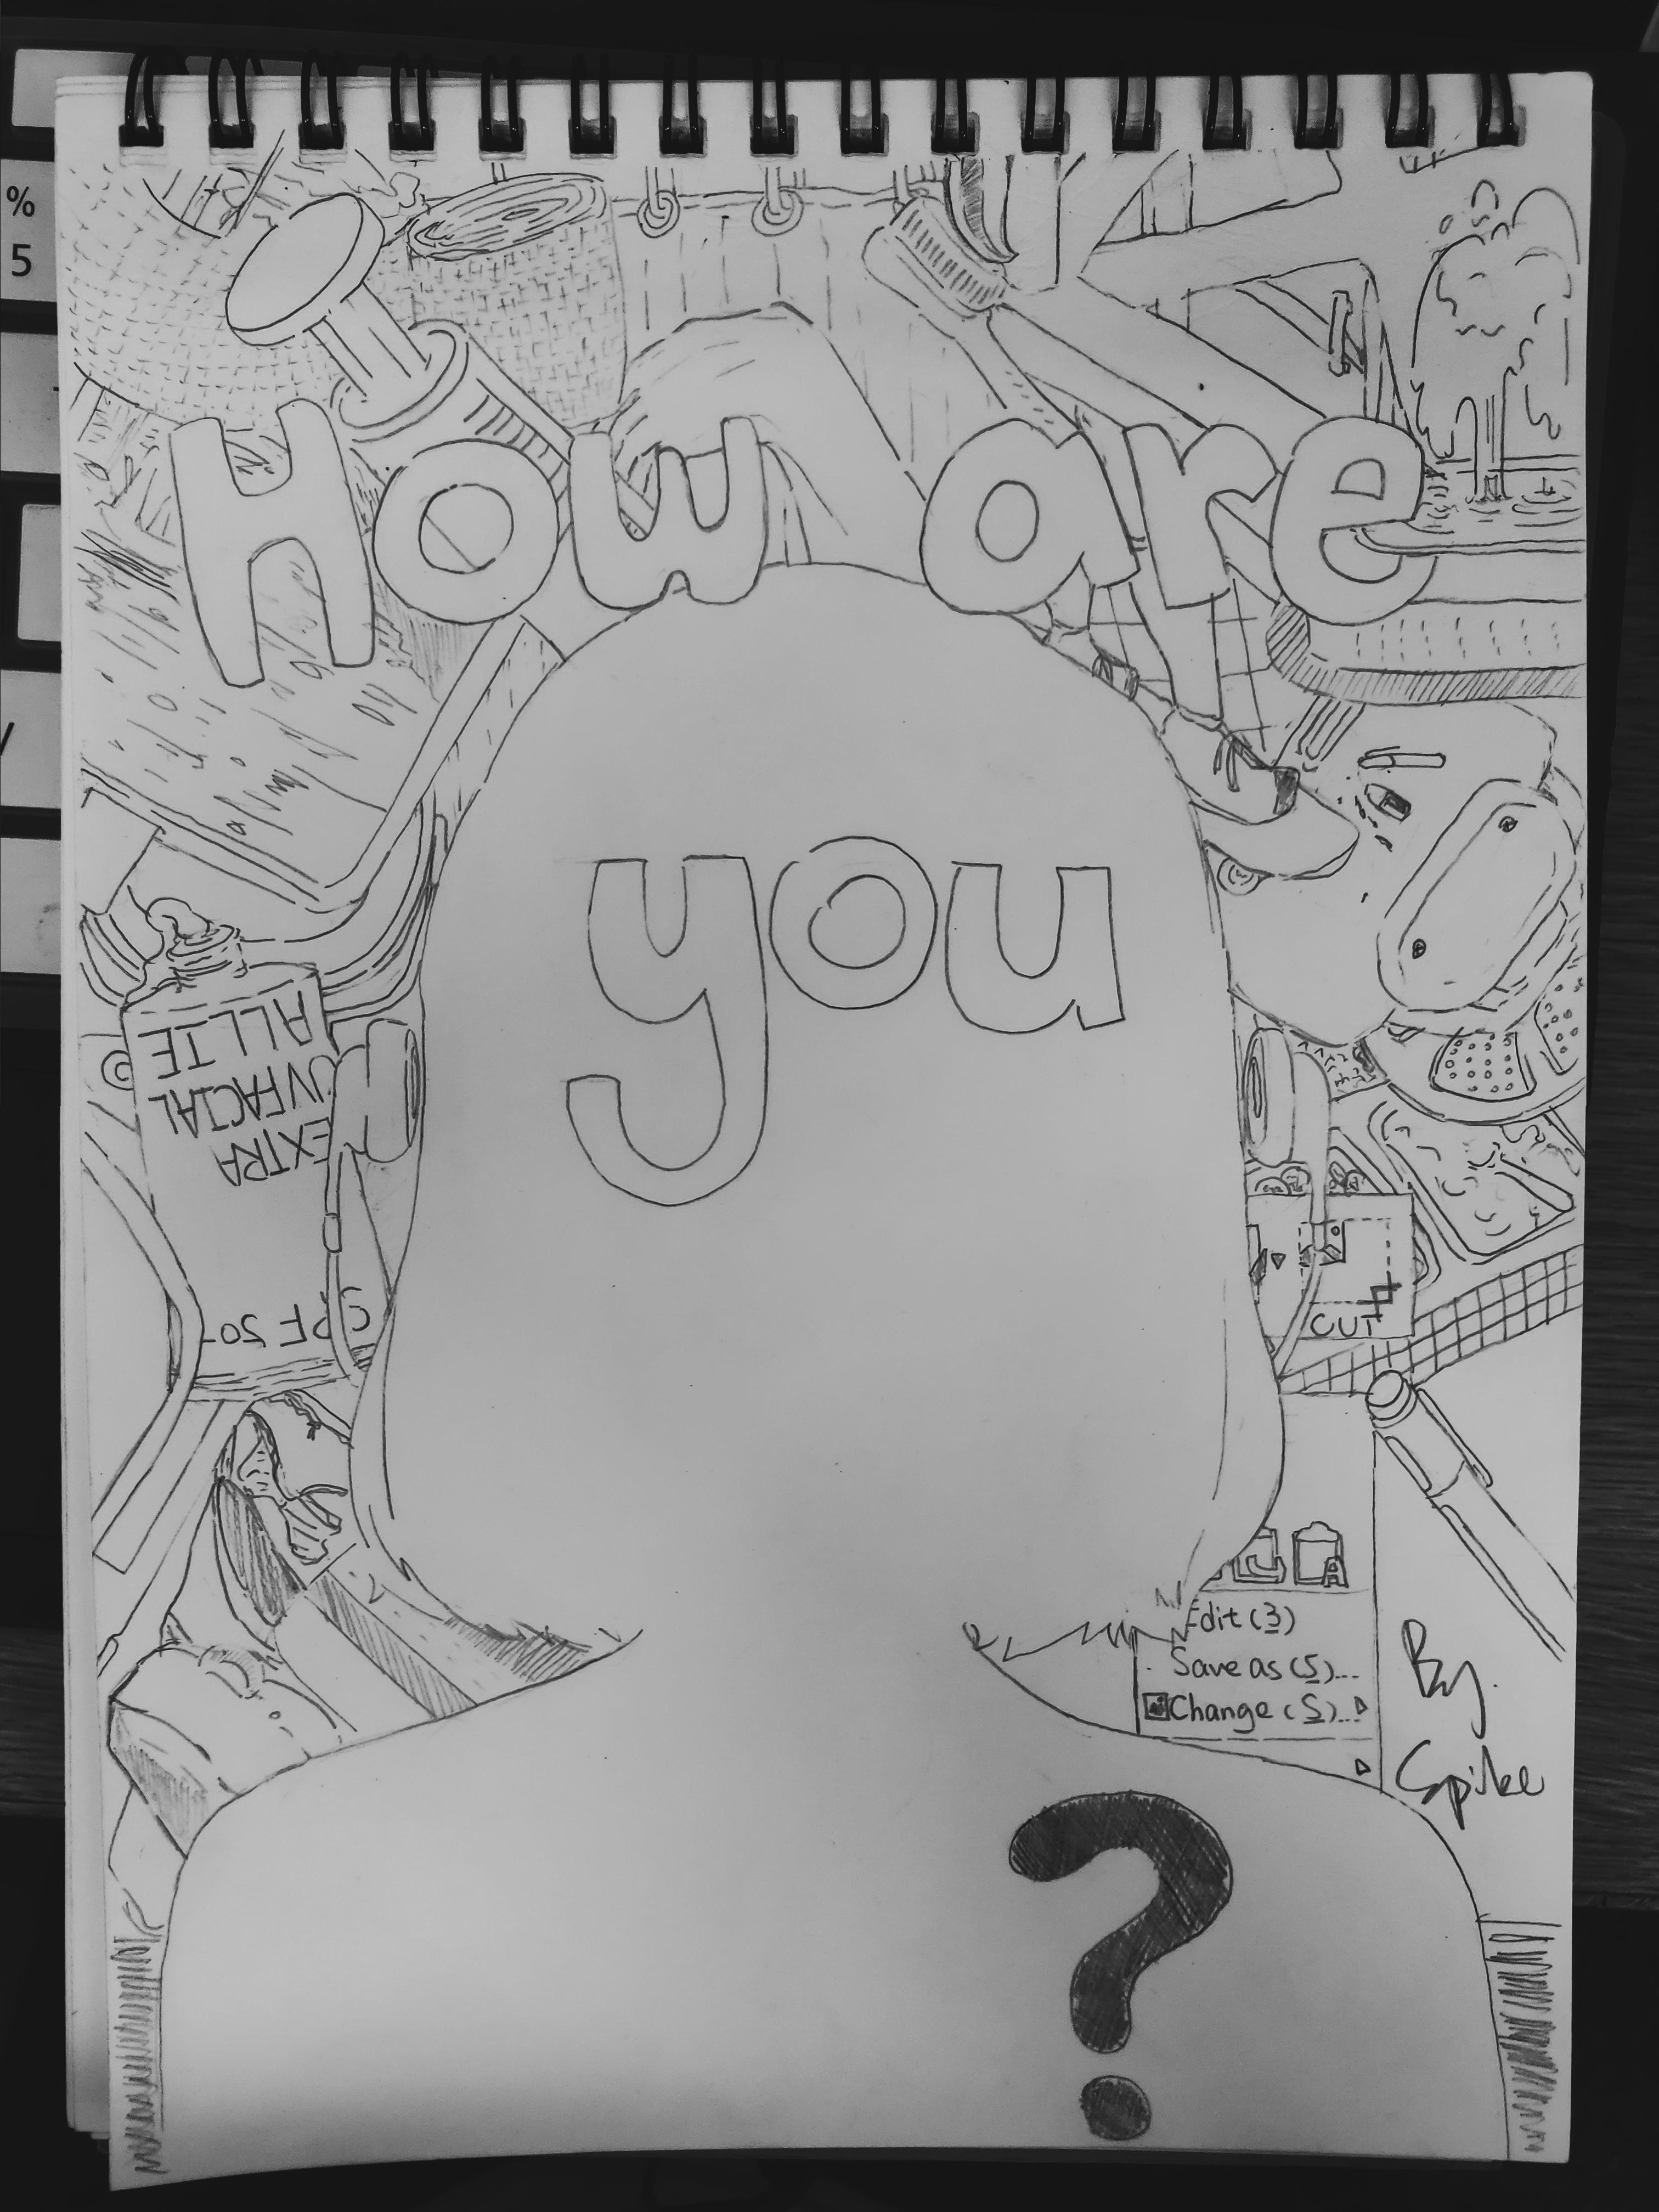 %
5
How are
you
ALLIE
UV FACIAL
EXTRA
SPF 50+
CUT
A
Edit (3)
Save as (S)...
Change (S)...
By.
Spike
?